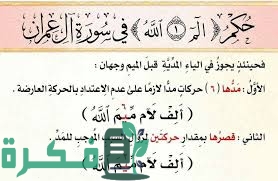 حُكم ﴿ الٓمٓ ۝١ ٱللَّهُ ﴾ في سورة آل عمران
فحينئذٍ يجوز في الياء المدِّيَّة قبل الميم وجهان :
الأوَّلُ : مَدُّها (٦) حركاتٍ مدًّا لازمًا على عدم الاعتداد بالحركة العارضة .
( أَلِفْ لَامْ مِيمَ ٱللَّهُ )
الثاني : قصرُها بمقدار حركتين لزوال السبب الموجب للمدِّ .
( أَلِفْ لَامْ مِيمَ ٱللَّهُ )
فكرة